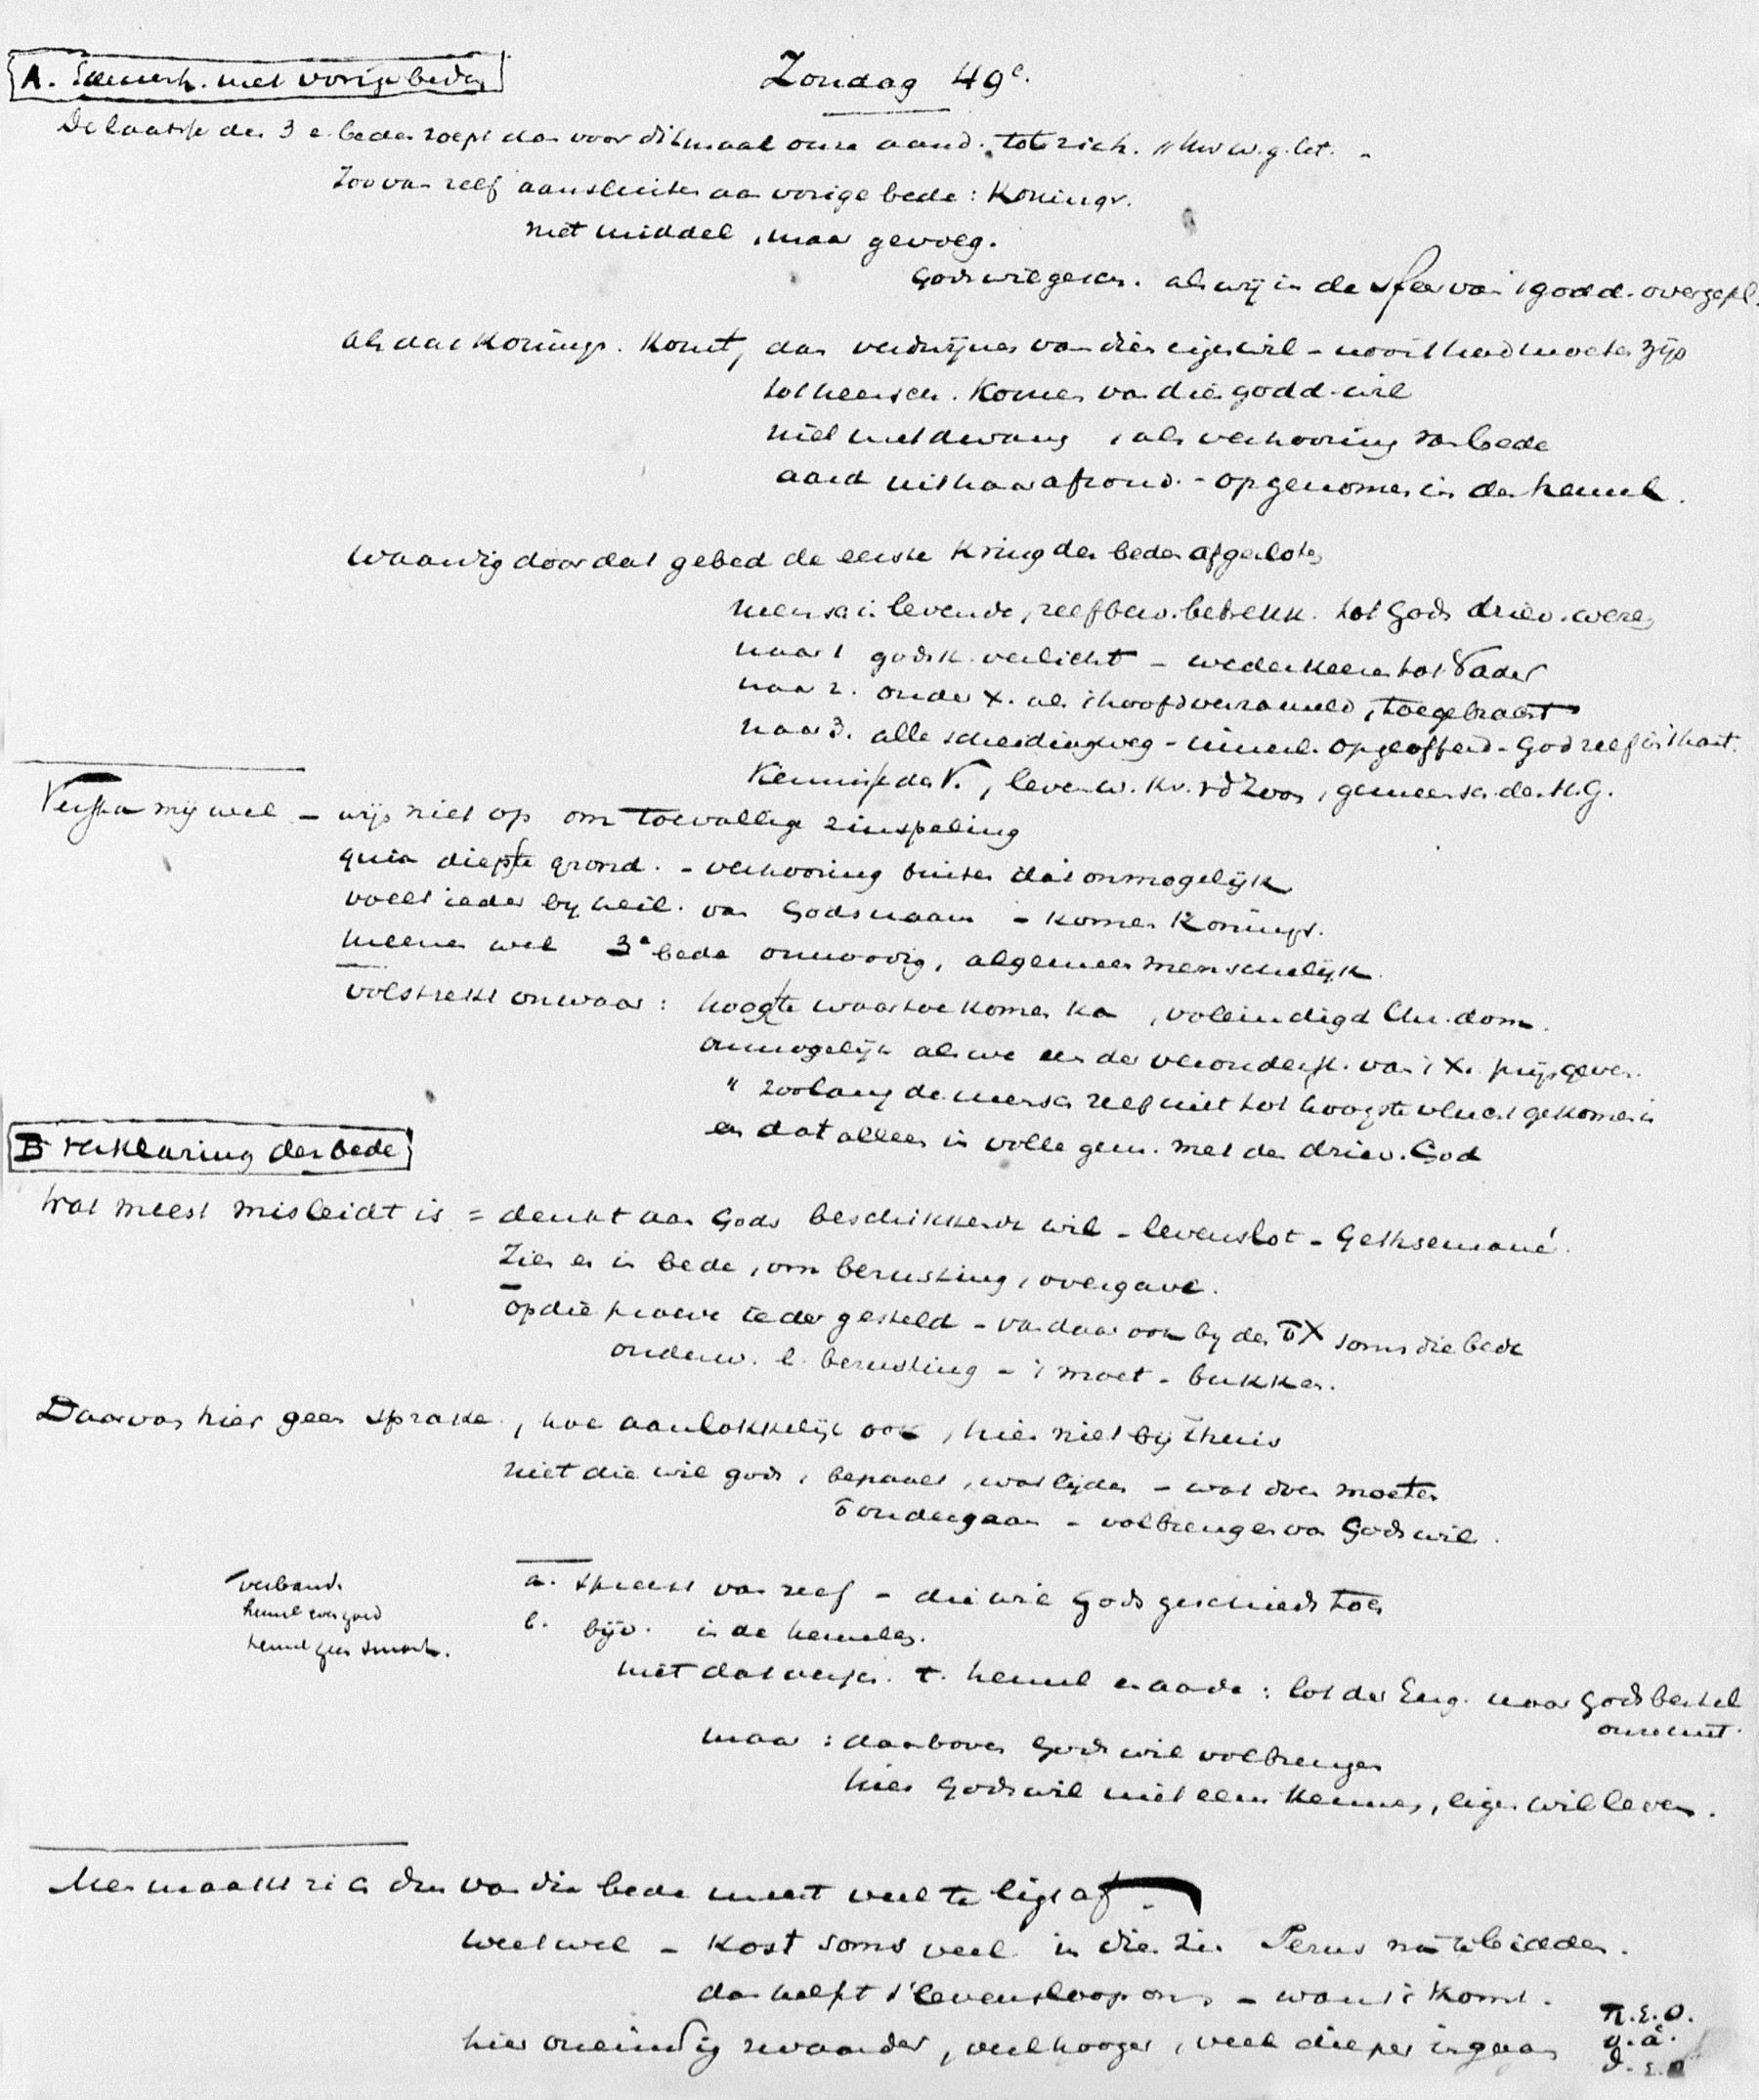 A. Samenh. met vorige beden
Zondag 49e.
De laatste der 3 e. beden roept dan voor ditmaal onze aand. tot zich. "Uw w. g. let. -
Zoo van zelf aansluiten aan vorige bede: Koningr.
niet middel, maar gevolg.
Gods wil gesch. als wij in de sfeer van 't godd. overgepl.
Als dat Koningr. komt, dan verdwijnen van dien eigen wil - nooit had moeten zijn
tot heersch. komen van dien godd. wil
niet met dwang, als verhooring van bede
aard uit haar afrond. - opgenomen in den hemel.
Waardig door dat gebed de eerste kring der beden afgesloten
mensch in levende, zelfbew. betrekk. tot Gods drieë. wezen
naar 1 godsk. verlicht - wederkeeren tot Vader
naar 2. onder X. als 't hoofd verzameld, toegebracht
naar 3. alle scheiding weg - opgeofferd - God zelf in 't hart.
Kennisse des V., leven u. kr. v d Zoon, gemeensch. des H. G.
Versta mij wel - wijs niet op om toevallige zinspeling
quia diepste grond. - verhooring buiten dat onmogelijk
voelt ieder bij heil. van Gods naam - komen Koningr.
meenen wel 3e bede onnoodig, algemeen menschelijk.
volstrekt onwaar: hoogste waartoe komen kan, voleindigd Chr. dom.
onmogelijk als we een der veronderst. van 't X. prijsgeven.
" zoolang de mensch zelf niet tot hoogste vlucht gekomen is
en dat alleen in volle gem. met den drieë. God
B Verklaring der bede
Wat meest misleidt is = denkt aan Gods beschikkende wil - levenslot - Gethsemané.
Zien er in bede, om berusting, overgave.
op die proeve ieder gesteld - vandaar ook bij den X soms die bede
onderw. e. berusting - 't moet - bukken.
Daarvan hier geen sprake, hoe aanlokkelijk ook, hier niet bij thuis
niet die wil gods, bepaalt, wat lijden - wat doen moeten
ondergaan - volbrengen van Gods wil.
verband.
hemel evengoed
hemel geen smart.
a. spreekt van zelf - die wil Gods geschiedt toch
b. bijv. in de hemelen.
niet dat versch. t. hemel en aarde: lot der Eng. naar Gods bestel
onze niet.
maar: daarboven Gods wil volbrengen
hier Gods wil niet eens kennen, eigen wil leven.
Men maakt zich dan van die bede meest veel te ligt af
weet wel - kost soms veel in dien zin Jezus na te bidden.
dan helpt 's levensloop ons - want 't komt.
hier oneindig zwaarder, veel hooger, veel dieper ingaan